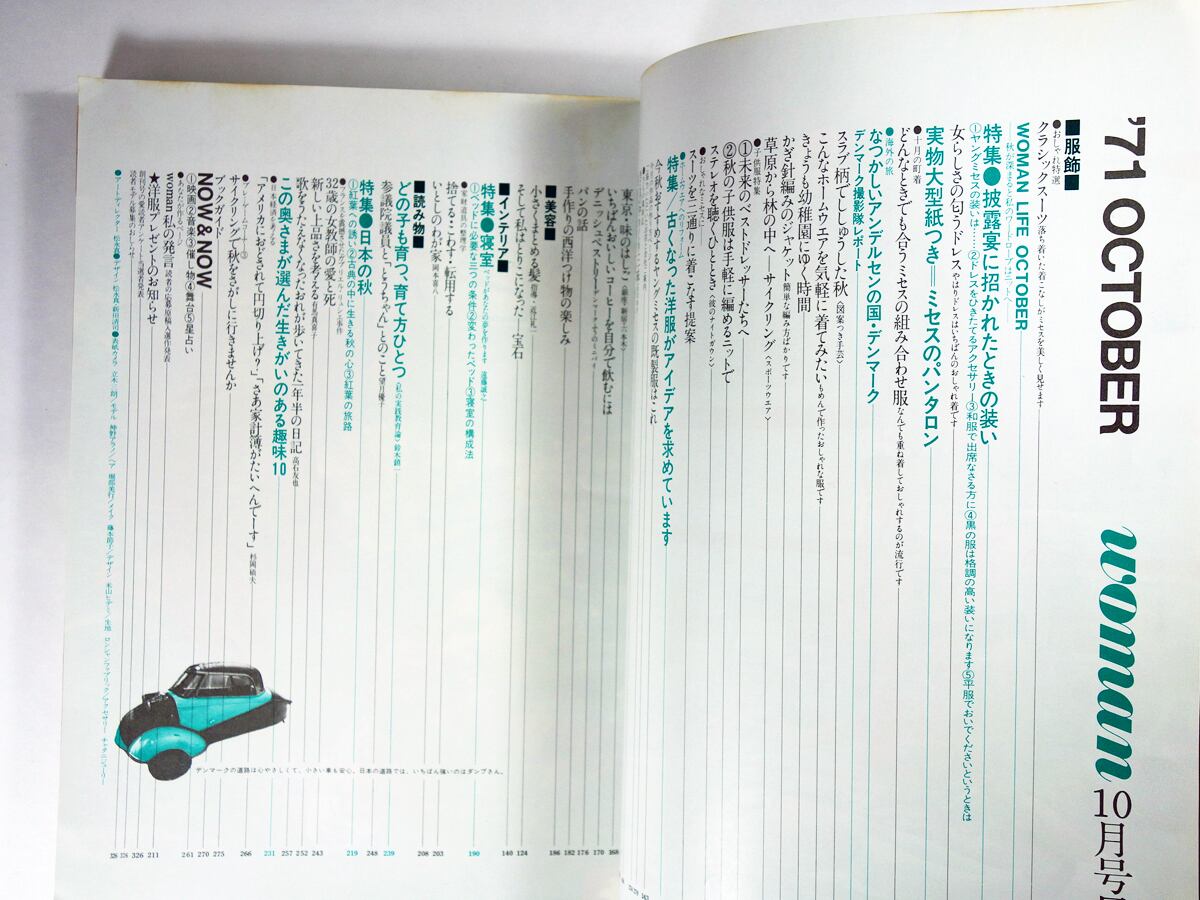 '71 OCTOBER
woman
10月号
■服飾■
●おしゃれ特選
クラシックスーツ落ち着いた着こなしがミセスを美しく見せます
WOMAN LIFE OCTOBER
特集●披露宴に招かれたときの装い
①ヤングミセスの装いは……②ドレスをひきたてるアクセサリー③和服で出席なさる方に④黒の服は格調の高い装いになります⑤平服でおいでくださいというときは
女らしさの匂うドレスやはりドレスはいちばんのおしゃれ着です
実物大型紙つき＝ミセスのパンタロン
●十月の町着
どんなときでも合うミセスの組み合わせ服なんでも重ね着しておしゃれするのが流行です
●海外の旅
なつかしいアンデルセンの国・デンマーク
デンマーク撮影隊レポート
スラブ柄でししゅうした秋〈図案つき手芸〉
こんなホームウエアを気軽に着てみたいもめんで作ったおしゃれな服です
きょうも幼稚園にゆく時間
かぎ針編みのジャケット簡単な編み方ばかりです
草原から林の中へ—サイクリング〈スポーツウエア〉
●子供服特集
①未来のベストドレッサーたちへ
②秋の子供服は手軽に編めるニットで
ステレオを聴くひととき〈彼のナイトガウン〉
スーツを二通りに着こなす提案
特集●古くなった洋服がアイデアを求めています
今秋おすすめするヤングミセスの既製服はこれ
東京・味のはしご〈銀座・新宿・六本木〉
いちばんおいしいコーヒーを自分で飲むには
デニッシュペストリー
パンの話
手作りの西洋つけ物の楽しみ
■美容■
小さくまとめる髪
そして私はとりこになった・宝石
■インテリア■
特集●寝室
①ベッドに必要な三つの条件②変わったベッド③寝室の構成法
捨てる・こわす・転用する
いとしのわが家
■読み物■
どの子も育つ、育て方ひとつ〈私の実践教育論〉鈴木鎮一
参議院議員と、とうちゃん」とのこと望月優子
特集●日本の秋
①紅葉への誘い②古典の中に生きる秋の心③紅葉の旅路
32歳の女教師の愛と死
新しい上品さを考える有馬真喜子
歌をうたえなくなったおれが歩いてきた二年半の日記高石友也
この奥さまが選んだ生きがいのある趣味10
●日本経済を考える
「アメリカにおどされて円切り上げ?」「さあ家計簿がたいへんでーす」杉岡碩夫
サイクリングで秋をさがしに行きませんか
ブックガード
NOW&NOW
①映画②音楽③催し物④舞台⑤星占い
●あなたが作る
woman 私の発言
★洋服プレゼントのお知らせ
読者モデル募集のおしらせ
デンマークの道路は心やさしくて、小さい車も安心。日本の道路では、いちばん強いのはダンプさん。
326 211
261 270 275 266 231 257 252 243 219 248 239 208 203 190 140 124 186 182 176 170 168